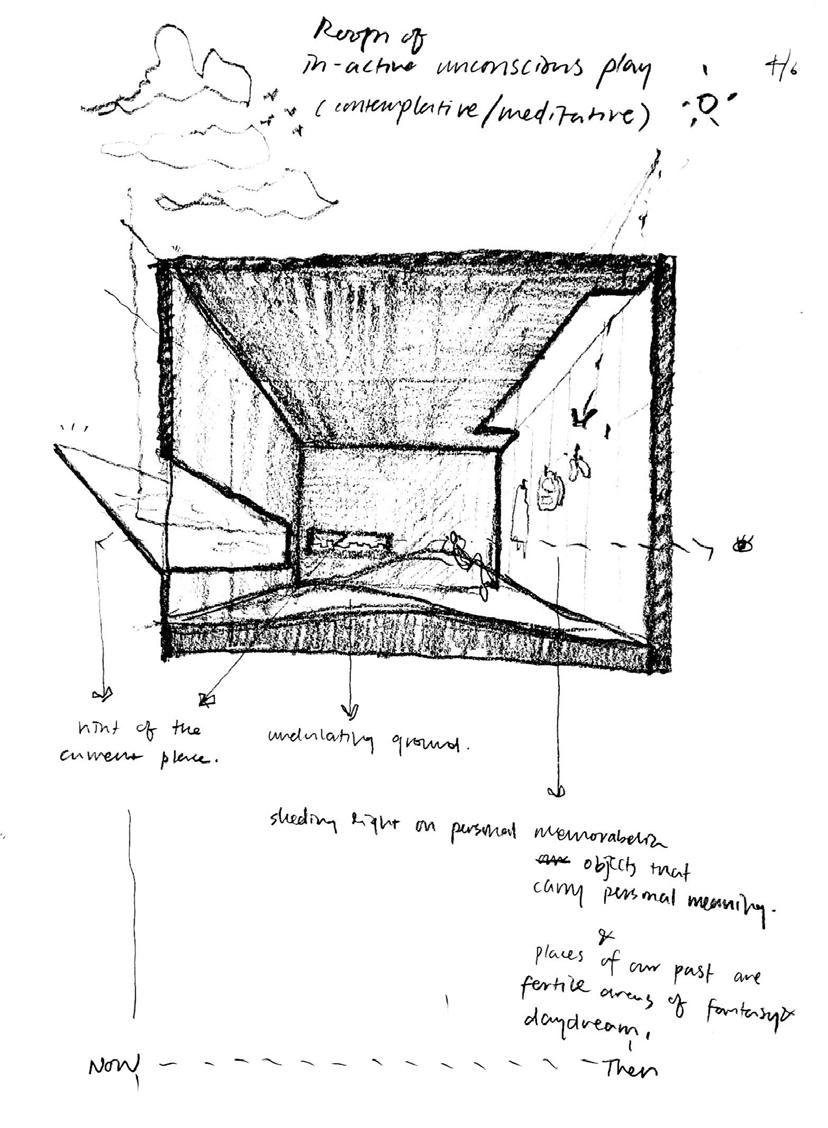 Room of
in-active unconscious play
(contemplative/meditative)
4/6
hint of the
current place.
undulating ground.
sheding light on personal memorabelia
are objects that
carry personal meaning.
&
places of our past are
fertile areas of fantasy &
daydream.
Now
Then